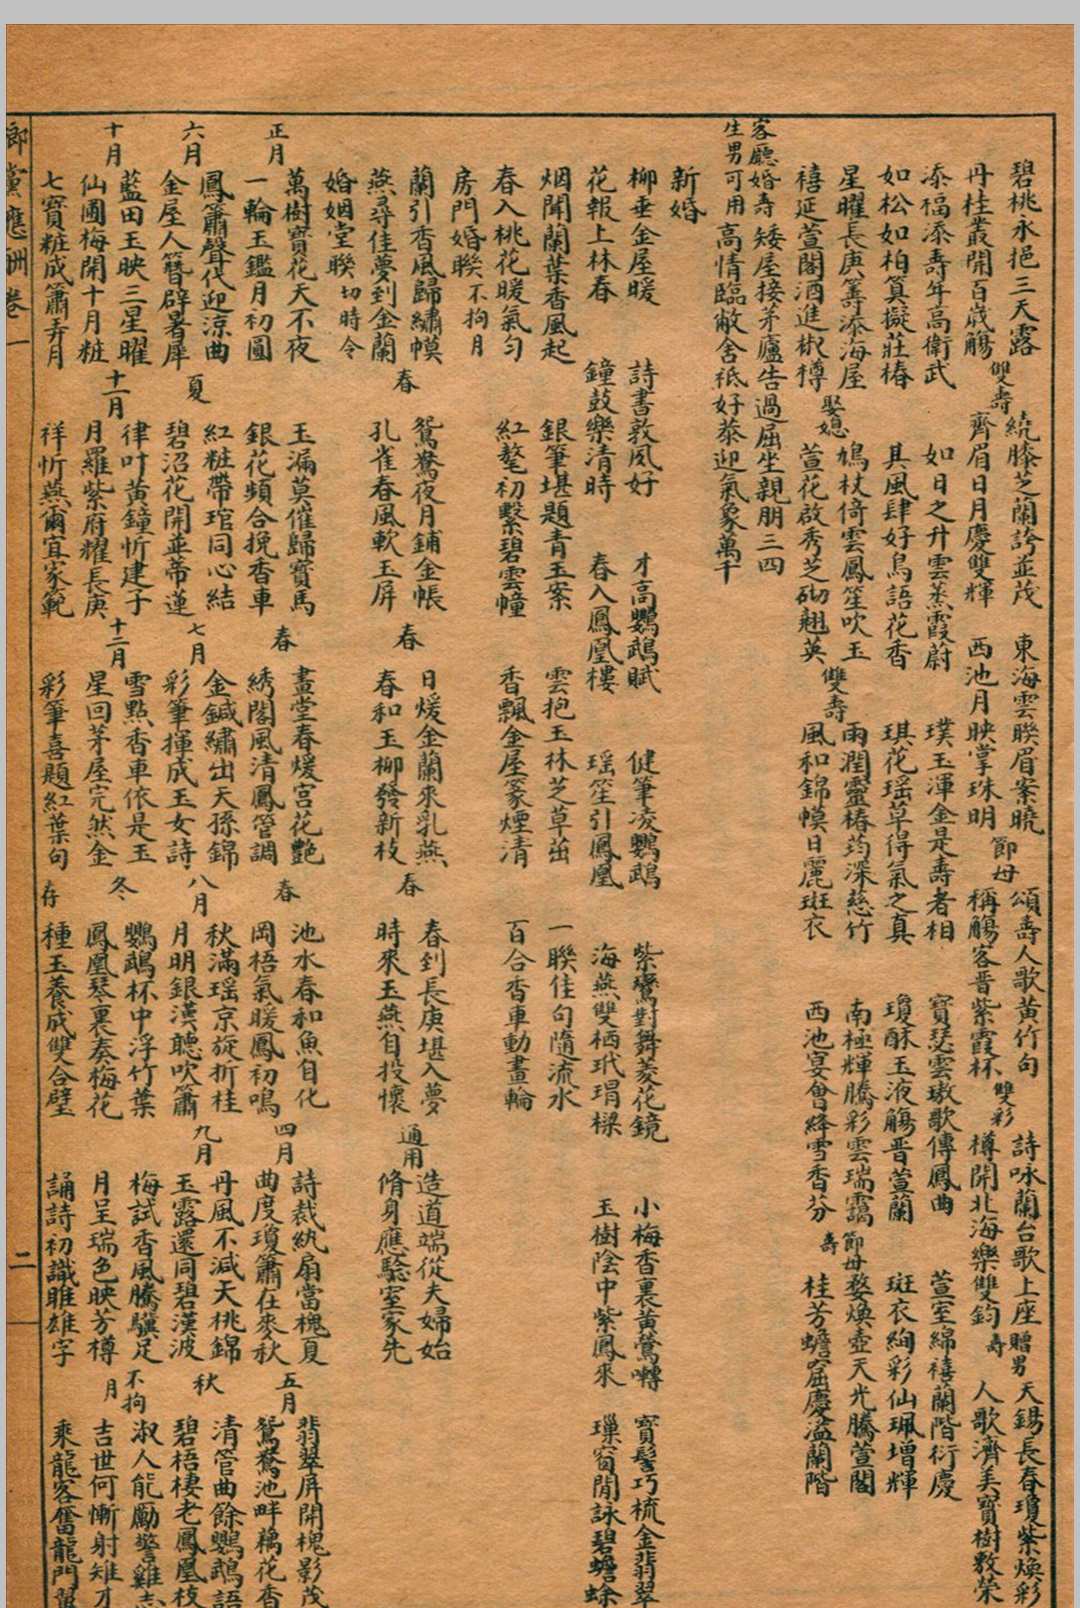 碧桃永挹三天露 繞膝芝蘭誇並茂 東海雲聯眉案曉 頌壽人歌黃竹句 詩咏蘭台歌上座 天錫長春瓊紫煥彩
丹桂叢開百歲觴 雙壽 齊眉日月慶雙輝 西池月映掌珠明 節母 稱觴客晋紫霞杯 雙彩 樽開北海樂雙鈞 贈男壽 人歌濟美寶樹敷榮
添福添壽年高衛武 如日之升雲蒸霞蔚 璞玉渾金是壽者相 寶瑟雲璈歌傳鳳曲 萱室綿禧蘭階衍慶
如松如柏算擬莊椿 其風肆好鳥語花香 琪花瑶草得氣之真 瓊酥玉液觴晋萱蘭 斑衣絢彩仙珮增輝
星曜長庚籌添海屋 鳩杖倚雲鳳笙吹玉 雨潤靈椿筠深慈竹 南極輝騰彩雲瑞靄 婺煥壺天光騰萱閣
禧延萱閣酒進椒樽 娶媳 萱花啟秀芝砌翹英 雙壽 風和錦幙日麗斑衣 西池宴會絳雪香芬 節母壽 桂芳蟾窟慶溢蘭階
客廳婚壽 矮屋接茅廬告過屈坐親朋三四
生男可用 高情臨敝舍祗好恭迎氣象萬千
新婚
柳垂金屋暖 詩書敦夙好 才高鸚鵡賦 健筆凌鸚鵡 紫鸞對舞菱花鏡 小梅香裏黃鶯囀 寶髻巧梳金翡翠
花報上林春 鐘鼓樂清時 春入鳳凰樓 瑶笙引鳳凰 海燕雙栖玳瑁樑 玉樹陰中紫鳳來 璅窗閒詠碧蟾蜍
烟聞蘭葉香風起 銀筆堪題青玉案 雲抱玉林芝草茁 一聯佳句隨流水
春入桃花暖氣匀 紅鸞初繫碧雲幢 香飄金屋篆煙清 百合香車動畫輪
房門婚聯 不拘月
蘭引香風歸繡幙 鴛鴦夜月鋪金帳 日煖金蘭來乳燕 春到長庚堪入夢 造道端從夫婦始
燕尋佳夢到金蘭 春 孔雀春風軟玉屏 春 春和玉柳發新枝 春 時來玉燕自投懷 通用 脩身應騐室家先
婚姻堂聯 切時令
萬樹寶花天不夜 玉漏莫催歸寶馬 畫堂春煖宮花艷 池水春和魚自化 詩裁紈扇當槐夏 翡翠屏開槐影茂
正月 一輪玉鑑月初圓 銀花頻合挽香車 春 綉閣風清鳳管調 春 岡梧氣暖鳳初鳴 四月 曲度瓊簫在麥秋 五月 鴛鴦池畔藕花香
鳳簫聲代迎涼曲 紅粧帶琯同心結 金鍼繡出天孫錦 秋滿瑶京旋折桂 丹風不減天桃錦 清管曲餘鸚鵡語
六月 金屋人簪辟暑犀 夏 碧沼花開並蒂蓮 七月 彩筆揮成玉女詩 八月 月明銀漢聽吹簫 九月 玉露還同碧漢波 秋 碧梧棲老鳳凰枝
藍田玉映三星曜 律叶黃鐘忻建子 雪點香車依是玉 鸚鵡杯中浮竹葉 梅試香風騰驥足 淑人能勵警雞志
十月 仙圃梅開十月粧 十一月 月羅紫府耀長庚 十二月 星回茅屋完然金 冬 鳳凰琴裏奏梅花 月呈瑞色映芳樽 不拘月 吉世何慚射雉才
七寶粧成簫弄月 祥忻燕爾宜家範 彩筆喜題紅葉句 存 種玉養成雙合璧 誦詩初識雎雄字 乘龍客奮龍門
鄉黨應酬卷一 二